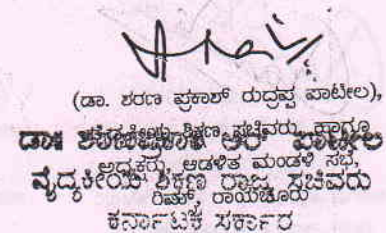 (ಡಾ. ಶರಣ ಪ್ರಕಾಶ್ ರುದ್ರಪ್ಪ ಪಾಟೀಲ),
ವೈದ್ಯಕೀಯ ಶಿಕ್ಷಣ ಸಚಿವರು ಹಾಗೂ
ಡಾ॥ ಶರಣಪ್ರಕಾಶ ಆರ್ ಪಾಟೀಲ
ಅಧ್ಯಕ್ಷರು, ಆಡಳಿತ ಮಂಡಳಿ ಸಭೆ,
ವೈದ್ಯಕೀಯ ಶಿಕ್ಷಣ ರಾಜ್ಯ ಸಚಿವರು
ರಿಮ್ಸ್, ರಾಯಚೂರು
ಕರ್ನಾಟಕ ಸರ್ಕಾರ